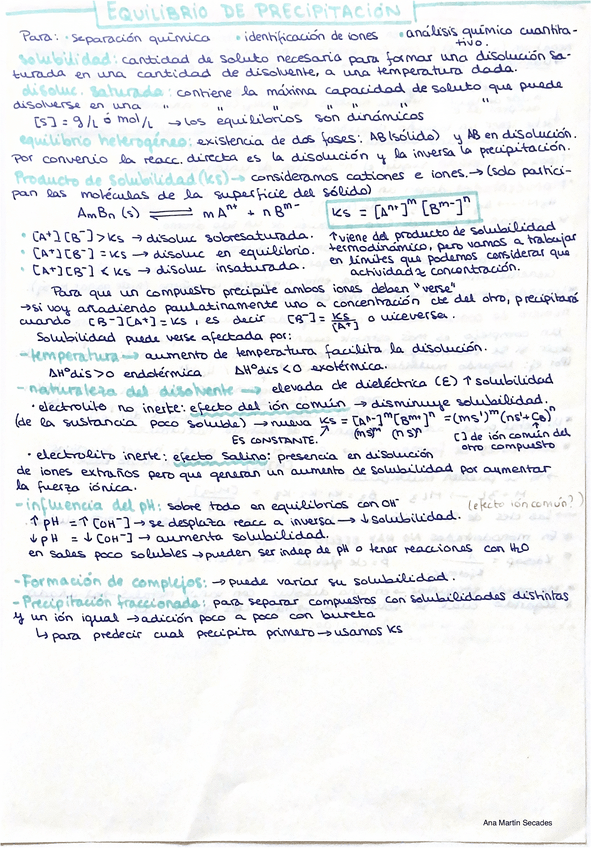 EQUILIBRIO DE PRECIPITACIÓN
Para: • separación química • identificación de iones • análisis químico cuantita-
tivo.
solubilidad: cantidad de soluto necesaria para formar una disolución sa-
turada en una cantidad de disolvente, a una temperatura dada.
disoluc. saturada: contiene la máxima capacidad de soluto que puede
disolverse en una " " " "
[S] = g/L ó mol/L → los equilibrios son dinámicos
equilibrio heterogéneo: existencia de dos fases: AB (sólido) y AB en disolución.
Por convenio la reacc. directa es la disolución y la inversa la precipitación.
Producto de solubilidad (Ks) → consideramos cationes e iones. → (solo partici-
pan las moléculas de la superficie del sólido)
AmBn (s) ⇌ m Aⁿ⁺ + n Bᵐ⁻ Ks = [Aⁿ⁺]ᵐ [Bᵐ⁻]ⁿ
• [A⁺][B⁻] > Ks → disoluc sobresaturada.
• [A⁺][B⁻] = Ks → disoluc en equilibrio.
• [A⁺][B⁻] < Ks → disoluc insaturada.
↑ viene del producto de solubilidad
termodinámico, pero vamos a trabajar
en límites que podemos considerar que
actividad ≈ concentración.
Para que un compuesto precipite ambos iones deben "verse"
→ si voy añadiendo paulatinamente uno a concentración cte del otro, precipitará
cuando [B⁻][A⁺] = Ks, es decir [B⁻] = Ks/[A⁺] o viceversa.
Solubilidad puede verse afectada por:
- temperatura → aumento de temperatura facilita la disolución.
ΔH°dis > 0 endotérmica. ΔH°dis < 0 exotérmica.
- naturaleza del disolvente → elevada de dieléctrica (E) ↑ solubilidad
• electrolito no inerte: efecto del ión común → disminuye solubilidad.
(de la sustancia poco soluble) → nueva Ks = [Aⁿ⁻]ᵐ[Bᵐ⁺]ⁿ = (ms')ᵐ (ns' + Cb)ⁿ
ES CONSTANTE. ↗ (ms)ᵐ (ns)ⁿ [] de ión común del
otro compuesto
• electrolito inerte: efecto salino: presencia en disolución
de iones extraños pero que generan un aumento de solubilidad por aumentar
la fuerza iónica.
- influencia del pH: sobre todo en equilibrios con OH⁻ (efecto ion común?)
↑ pH = ↑ [OH⁻] → se desplaza reacc a inversa → ↓ solubilidad.
↓ pH = ↓ [OH⁻] → aumenta solubilidad.
en sales poco solubles → pueden ser indep de pH o tener reacciones con H₂O
- Formación de complejos: → puede variar su solubilidad.
- Precipitación fraccionada: para separar compuestos con solubilidades distintas
y un ión igual → adición poco a poco con bureta
↳ para predecir cual precipita primero → usamos Ks
Ana Martin Secades